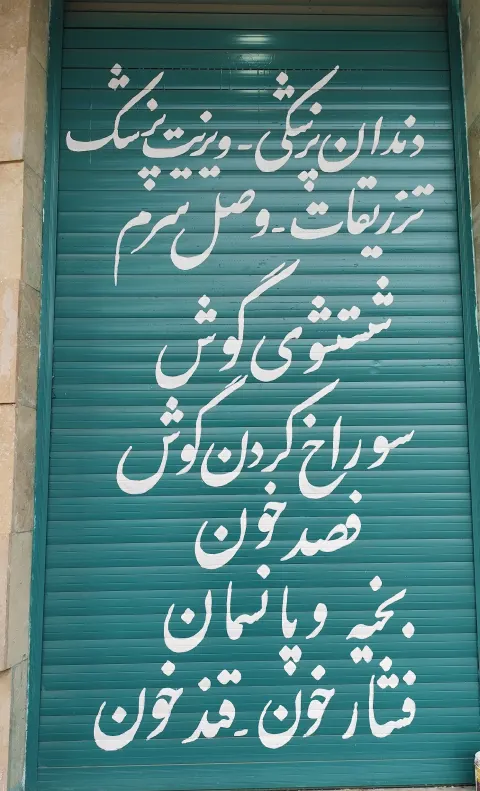 دندان پزشکی - ویزیت پزشک
تزریقات - وصل سرم
شستشوی گوش
سوراخ کردن گوش
فصد خون
بخیه و پانسمان
فشار خون - قند خون